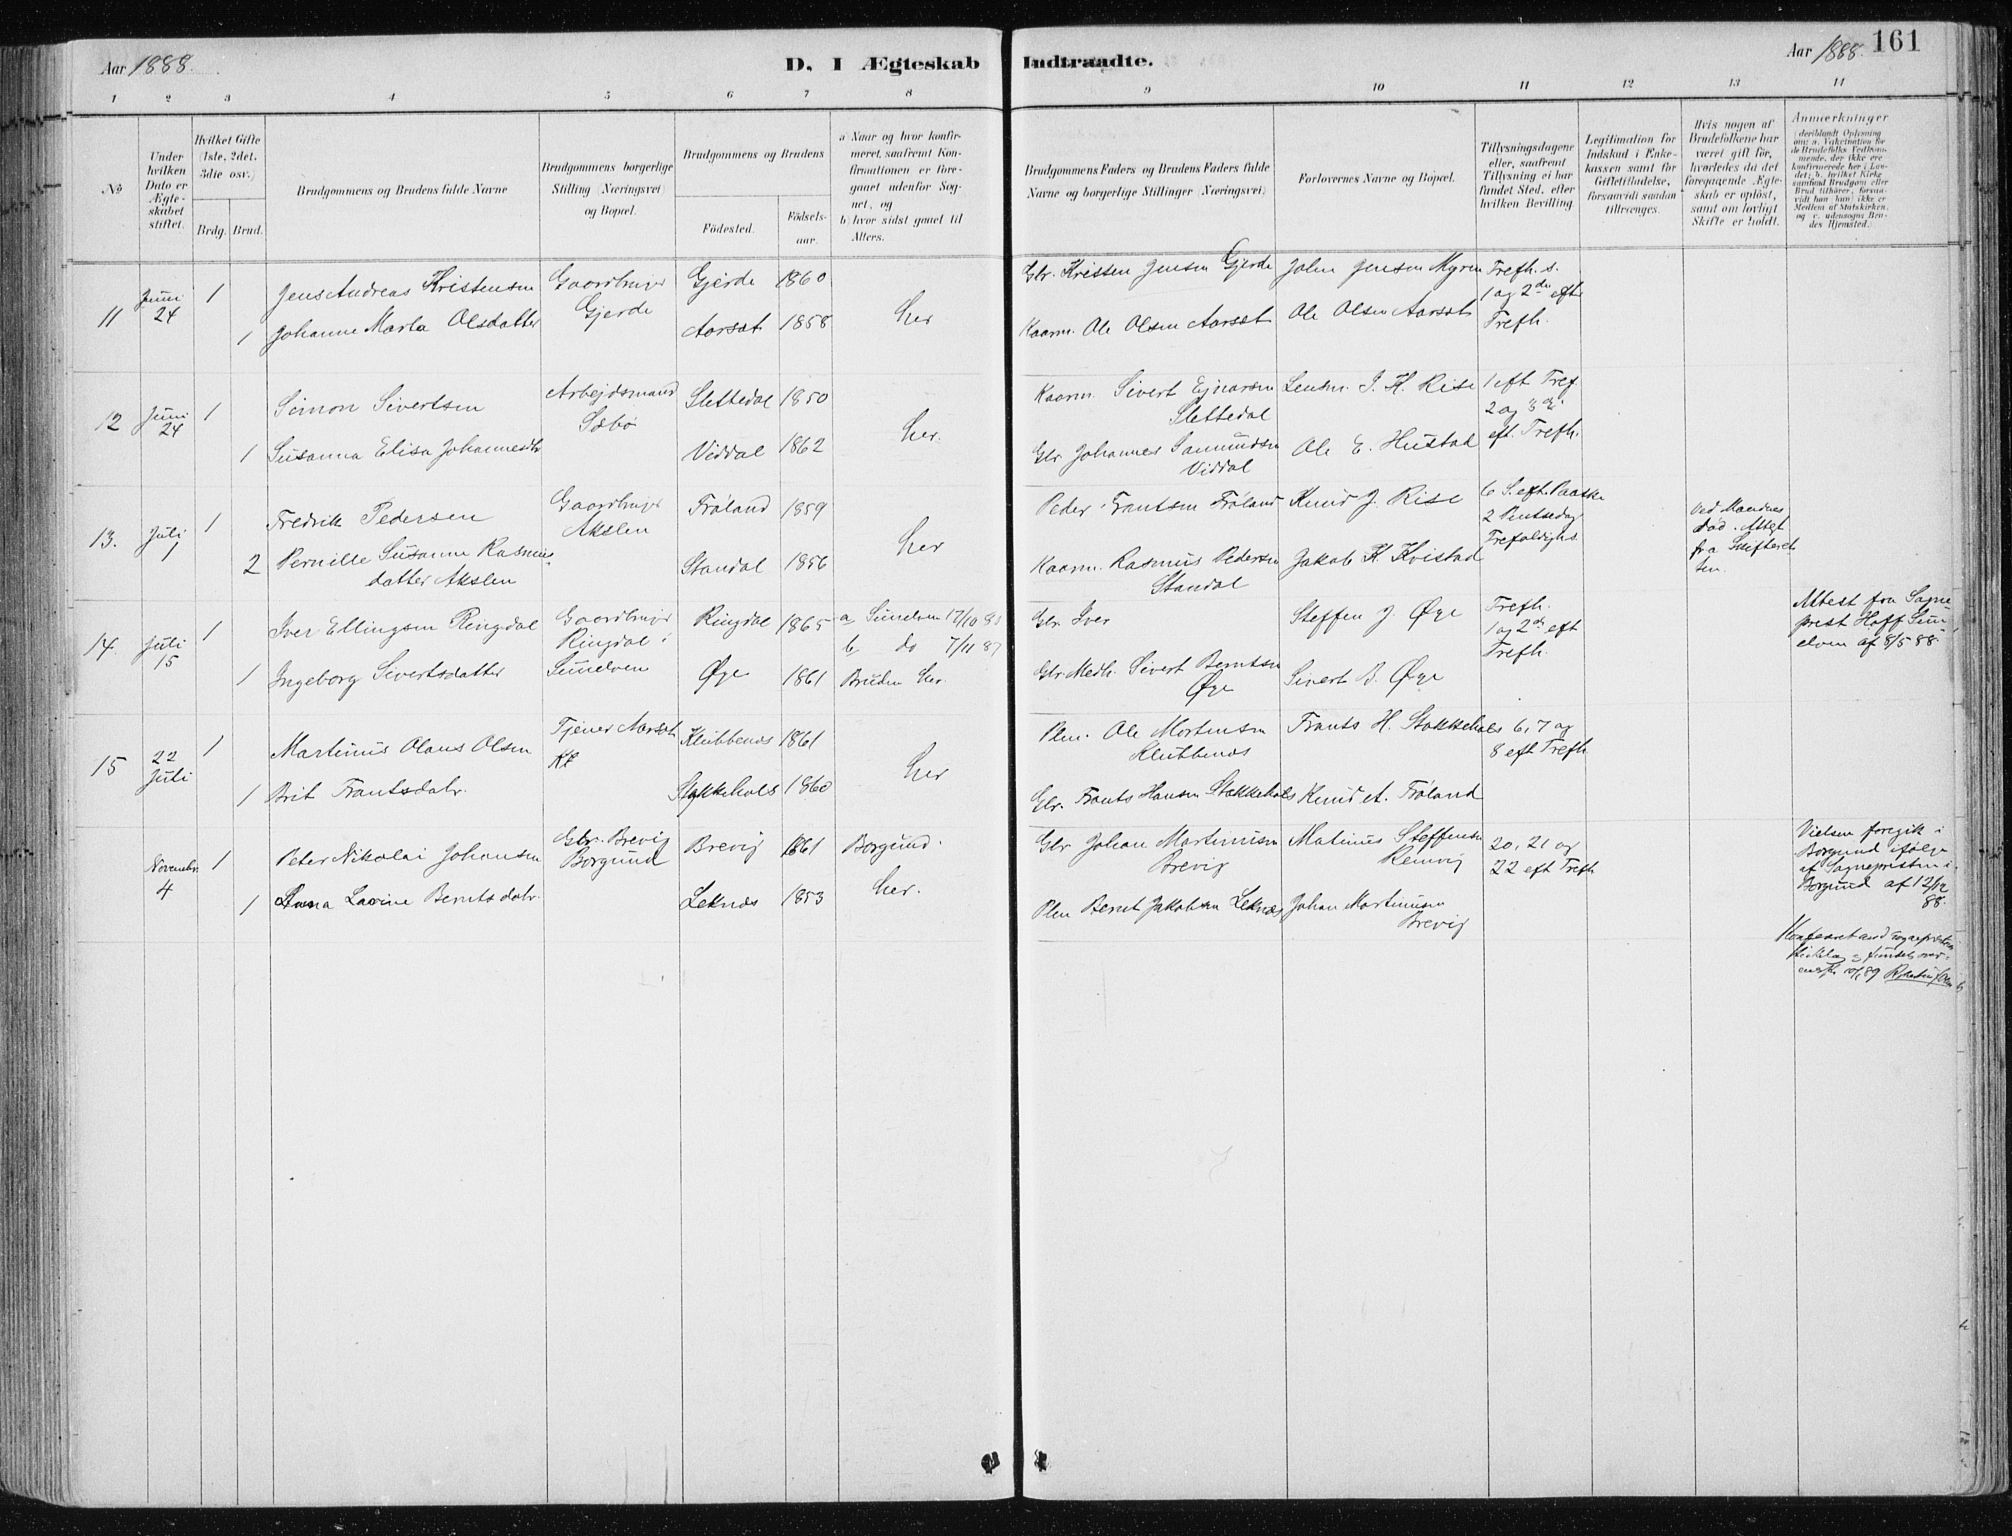 Aar 1888.
D. I Ægteskab Indtraadte.
Aar 1888. 161
1 2 3 4 5 6 7 8 9 10 11 12 13 14
No
Under hvilken Dato er Ægteskabet stiftet.
Hvilket Gifte (1ste, 2det, 3die osv.)
Brdg. Brud.
Brudgommens og Brudens fulde Navne
Brudgommens borgerlige Stilling (Næringsvei) og Bopæl.
Brudgommens og Brudens
Fødested.
Fødselsaar.
a Naar og hvor konfirmeret, saafremt Konfirmationen er foregaaet udenfor Sognet, og
b) hvor sidst gaaet til Alters.
Brudgommens Faders og Brudens Faders fulde Navne og borgerlige Stillinger (Næringsvei)
Forlovernes Navne og Bopæl.
Tillysningsdagene eller, saafremt Tillysning ei har fundet Sted, efter hvilken Bevilling
Legitimation for Indskud i Enkekassen samt for Giftetilladelse, forsaavidt saadan tiltrænges.
Hvis nogen af Brudefolkene har været gift før, hvorledes da det foregaaende Ægteskab er opløst, samt om lovligt Skifte er holdt.
Anmerkninger
11 Juni 24 1 Jens Andreas Kristensen Gaardbruger Gjerde Gjerde 1860 her Gbr. Kristen Jensen Gjerde John Jensen Myren Trefh. s. 1 og 2den eft Trefh.
1 Johanne Marta Olsdatter Aarsæt 1858 Kaarm. Ole Olsen Aarsæt Ole Olsen Aarsæt
12 Juni 24 1 Simon Sivertsen Arbejdsmand Sæbø Slettedal 1850 her. Kaarm. Sivert Ejnarsen Slettedal Lensm. J. K. Rise 1 eft Tref. 2 og 3de eft. Trefh.
1 Susanna Elisa Johannesdtr Viddal 1862 Gbr Johannes Samundsen Viddal Ole E. Hustad
13. Juli 1 1 Fredrik Pedersen Gaardbruger Akslen Frøland 1859 her Peder Frantsen Frøland Knud J. Rise 6 S. eft. Paaske 2 Pintsedag Trefoldighs ved Mandens død. Attest fra Skifteretten.
2 Pernille Susanne Rasmusdatter Akslen Standal 1856 Kaarm. Rasmus Pedersen Standal Jakob K. Kvistad
14. Juli 15 1 Iver Ellingsen Ringdal Gaardbruger Ringdal i Sunelven Ringdal 1865 a Sunelven 17/10 80 b do 7/11 87 Gbr. Iver Steffen J. Øye Trefh. 1 og 2de eft Trefh. Attest fra Sogneprest Hoff Sunelven af 8/5 88.
1 Ingeborg Sivertsdatter Øye 1861 Bruden her. Gbr Medh. Sivert Berntsen Øye Sivert B. Øye
15 22 Juli 1 Martinus Olaus Olsen Tjener Aarsæt Klubbenes 1861 her Pln. Ole Mortensen Klubbenes Frants H. Stakkehals 6, 7 og 8 eft Trefh
1 Brit Frantsdatr. Stakkehals 1860 Gbr. Frants Hansen Stakkehals Knud A. Frøland
Novembr. 4 1 Peter Nikolai Johansen Gbr. Brevig Borgund Brevig 1861 Borgund. Gbr Johan Martinusen Brevig Matinus Steffensen Remvig 20, 21 og 22 eft Trefh Vielsen foregik i Borgund ifølge af Sognepresten i Borgund af 12/12 88.
1 Lavine Berntsdatr. Leknes 1853 her. Pln Bernt Jakobsen Leknes Johan Martinusen Brevig